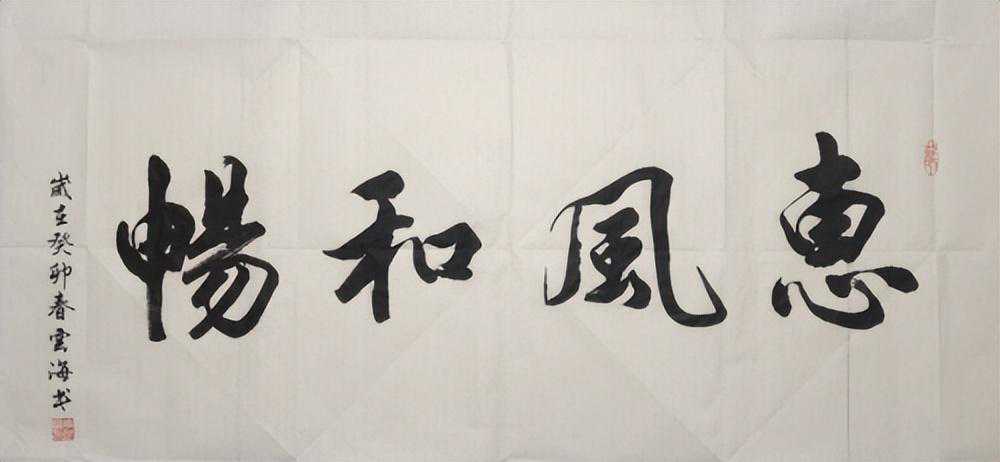 惠風和暢
歲在癸卯春雲海书